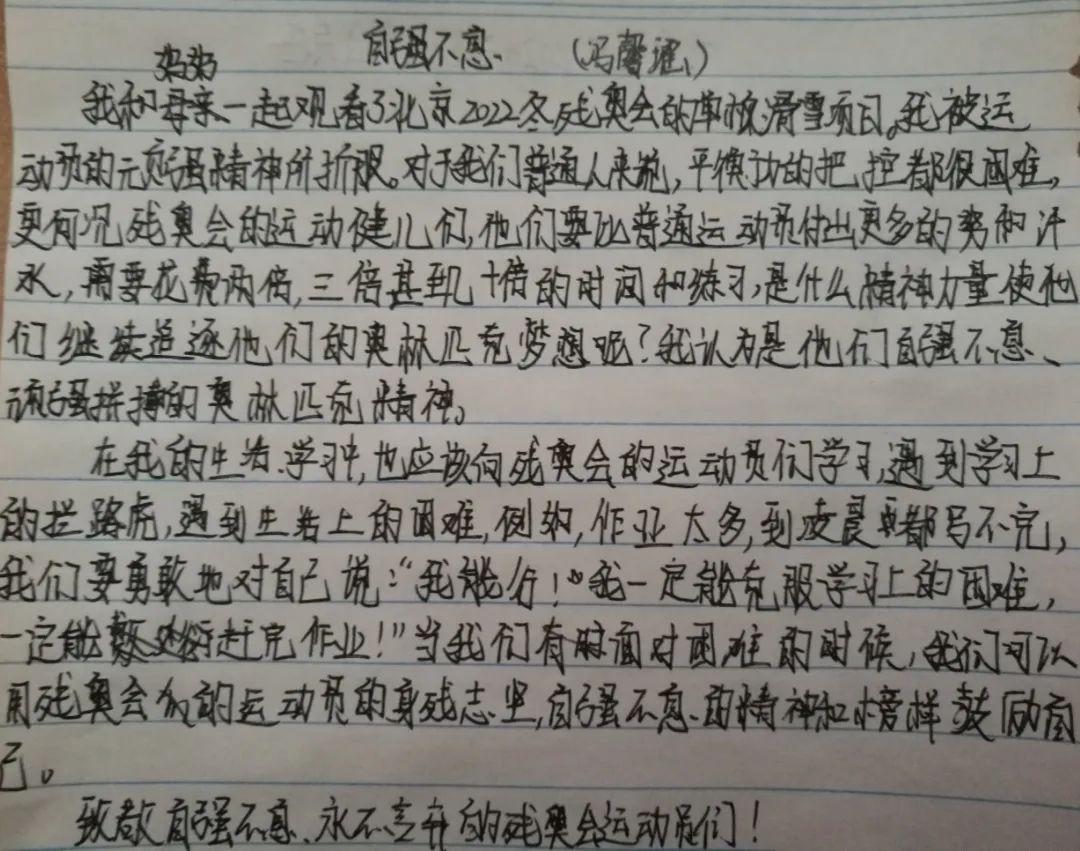 自强不息 (冯馨瑶)
妈妈
我和母亲一起观看了北京2022冬残奥会的单板滑雪项目。我被运
动员的顽强精神所折服。对于我们普通人来说,平衡力的把控都很困难,
更何况残奥会的运动健儿们,他们要比普通运动员付出更多的努和汗
水,需要花费两倍,三倍甚到几十倍的时间和练习,是什么精神力量使他
们继续追逐他们的奥林匹克梦想呢?我认为是他们自强不息、
顽强拼搏的奥林匹克精神。
在我的生活.学习中,也应该向残奥会的运动员们学习,遇到学习上
的拦路虎,遇到生活上的困难,例如,作业太多,到凌晨都写不完,
我们要勇敢地对自己说:“我能行!”我一定能克服学习上的困难,
一定能赶完作业!”当我们有时面对困难的时候,我们可以
用残奥会的运动员的身残志坚,自强不息的精神和榜样鼓励自
己。
致敬自强不息、永不言弃的残奥会运动员们!